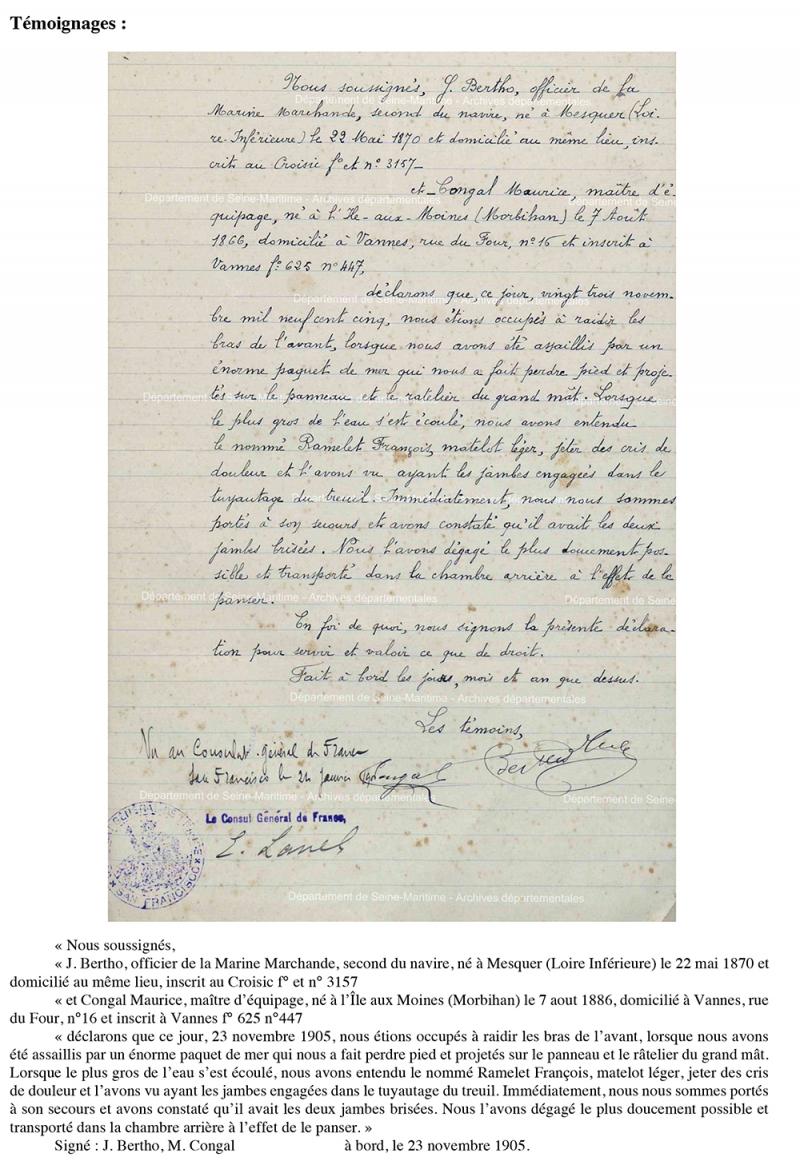 Témoignages :
Nous soussignés, J. Bertho, officier de la
Marine Marchande, second du navire, né à Mesquer (Loi-
re-Inférieure) le 22 Mai 1870 et domicilié au même lieu, ins-
crit au Croisic f° et n° 3157_
et_Congal Maurice, maître d'é-
quipage, né à l'Ile-aux-Moines (Morbihan) le 7 Août
1866, domicilié à Vannes, rue du Four, n° 16 et inscrit à
Vannes f° 625 n° 447,
déclarons que ce jour, vingt trois novem-
bre mil neuf cent cinq, nous étions occupés à raidir les
bras de l'avant, lorsque nous avons été assaillis par un
énorme paquet de mer qui nous a fait perdre pied et proje-
tés sur le panneau et le ratelier du grand mât. Lorsque
le plus gros de l'eau s'est écoulé, nous avons entendu
le nommé Ramelet François, matelot léger, jeter des cris de
douleur et l'avons vu ayant les jambes engagées dans le
tuyautage du treuil. Immédiatement, nous nous sommes
portés à son secours et avons constaté qu'il avait les deux
jambes brisées. Nous l'avons dégagé le plus doucement pos-
sible et transporté dans la chambre arrière à l'effet de le
panser.
En foi de quoi, nous signons la présente déclara-
tion pour servir et valoir ce que de droit.
Fait à bord les jours, mois et an que dessus.
Les témoins,
Vu au Consulat général de France
San Francisco le 24 janvier
Congal
Bertho
Le Consul Général de France,
E. Lanel
SAN FRANCISCO
Département de Seine-Maritime - Archives départementales
« Nous soussignés,
« J. Bertho, officier de la Marine Marchande, second du navire, né à Mesquer (Loire Inférieure) le 22 mai 1870 et
domicilié au même lieu, inscrit au Croisic f° et n° 3157
« et Congal Maurice, maître d'équipage, né à l'Île aux Moines (Morbihan) le 7 aout 1886, domicilié à Vannes, rue
du Four, n°16 et inscrit à Vannes f° 625 n°447
« déclarons que ce jour, 23 novembre 1905, nous étions occupés à raidir les bras de l'avant, lorsque nous avons
été assaillis par un énorme paquet de mer qui nous a fait perdre pied et projetés sur le panneau et le râtelier du grand mât.
Lorsque le plus gros de l'eau s'est écoulé, nous avons entendu le nommé Ramelet François, matelot léger, jeter des cris
de douleur et l'avons vu ayant les jambes engagées dans le tuyautage du treuil. Immédiatement, nous nous sommes portés
à son secours et avons constaté qu'il avait les deux jambes brisées. Nous l'avons dégagé le plus doucement possible et
transporté dans la chambre arrière à l'effet de le panser. »
Signé : J. Bertho, M. Congal à bord, le 23 novembre 1905.